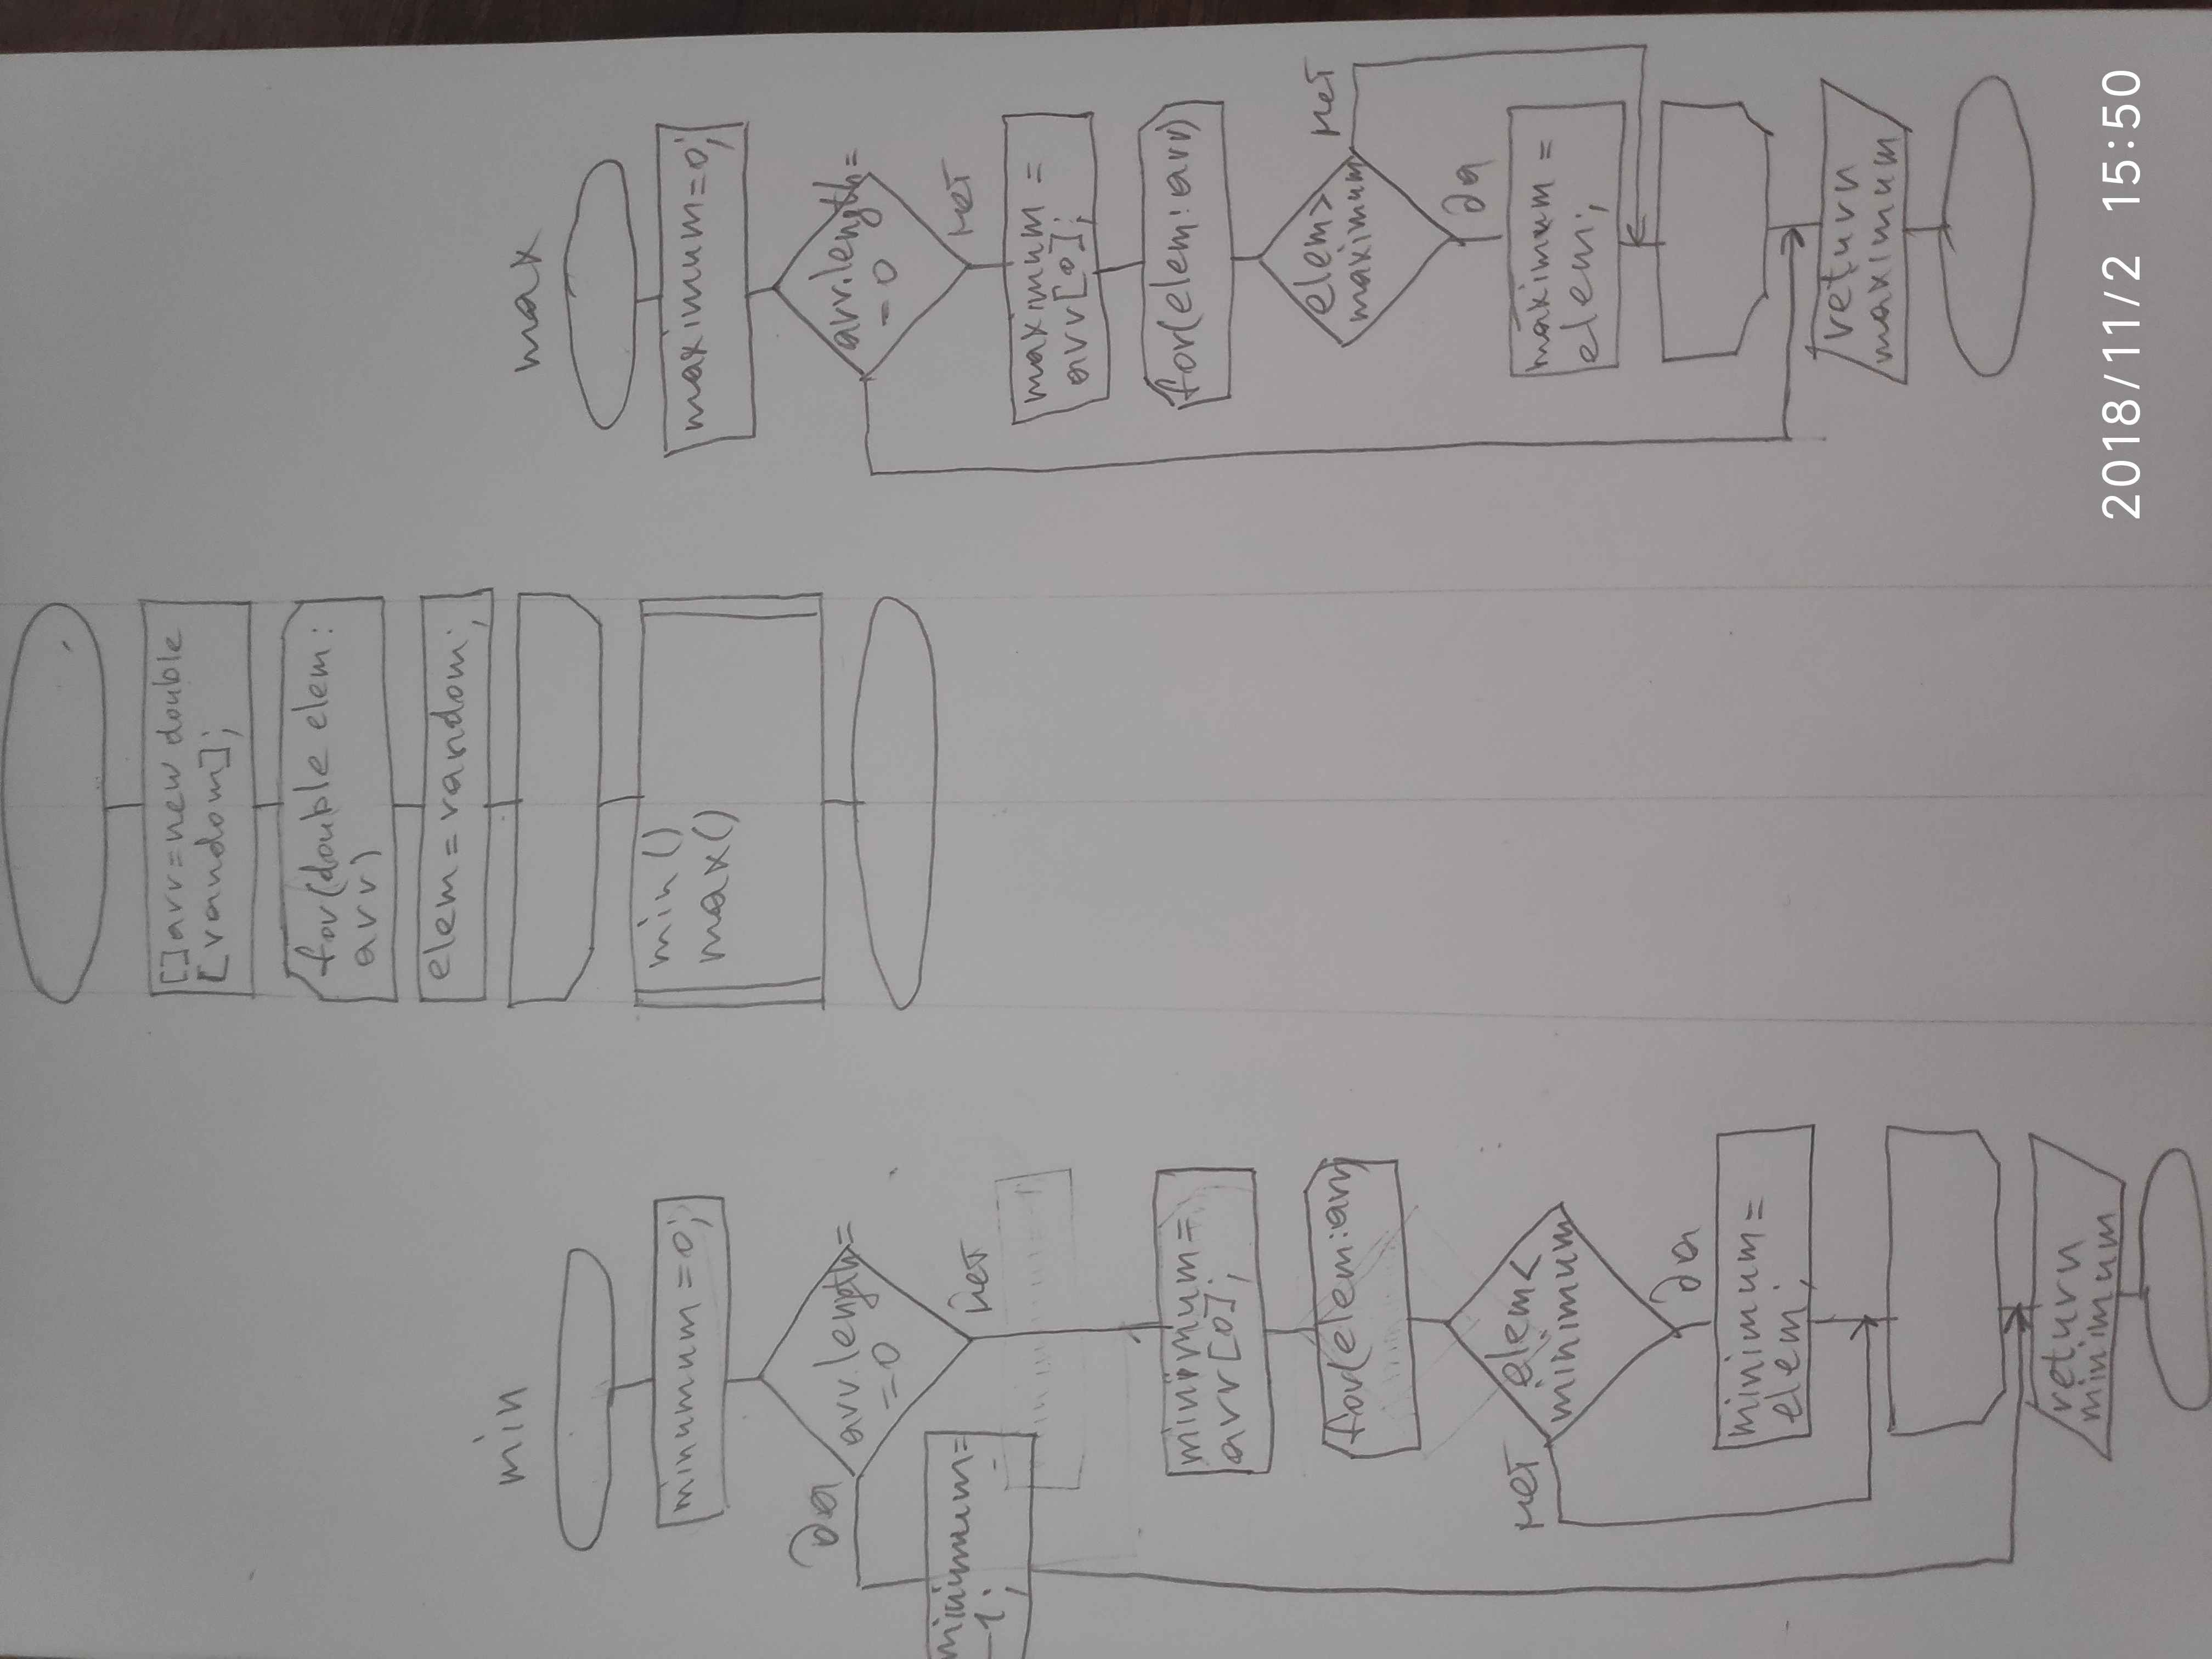 []arr=new double
[random];
for(double elem:
arr)
elem=random;
min()
max()
min
minumum=0;
arr.length=
=0
да
нет
minimum=
-1;
minimum=
arr[0];
for(elem:arr)
elem<
minimum
нет
да
minimum=
elem;
return
minimum
max
maximum=0;
arr.length=
=0
нет
maximum=
arr[0];
for(elem:arr)
elem>
maximum
нет
да
maximum=
elem;
return
maximum
2018/11/2 15:50